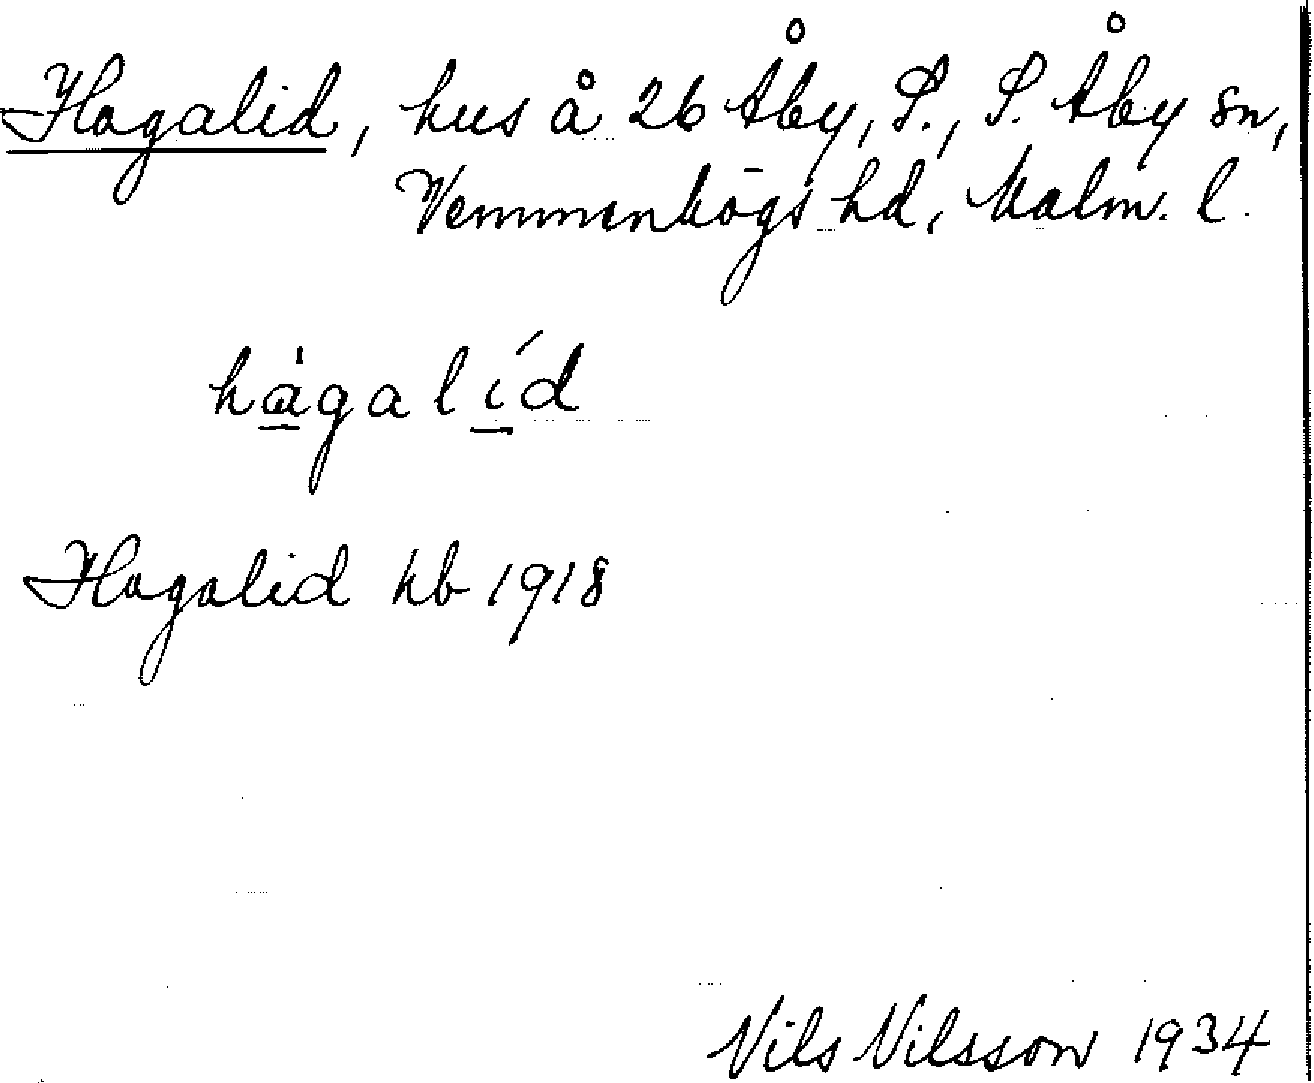 Hagalid, hus å 26 Åby, S., S. Åby sn,
Vemmenhögs hd, Malm. l.
hàgalíd
Hagalid kb 1918
Nils Nilsson 1934